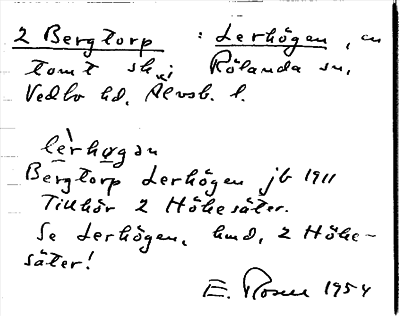 2 Bergtorp : Lerhögen, en
tomt sk. i Rölanda sn,
Vedbo hd, Älvsb. l.
lèrhøgən
Bergtorp Lerhögen jb 1911
Tillhör 2 Höhesäter.
Se Lerhögen, hmd, 2 Höhe-
säter!
E. Rosén 1954